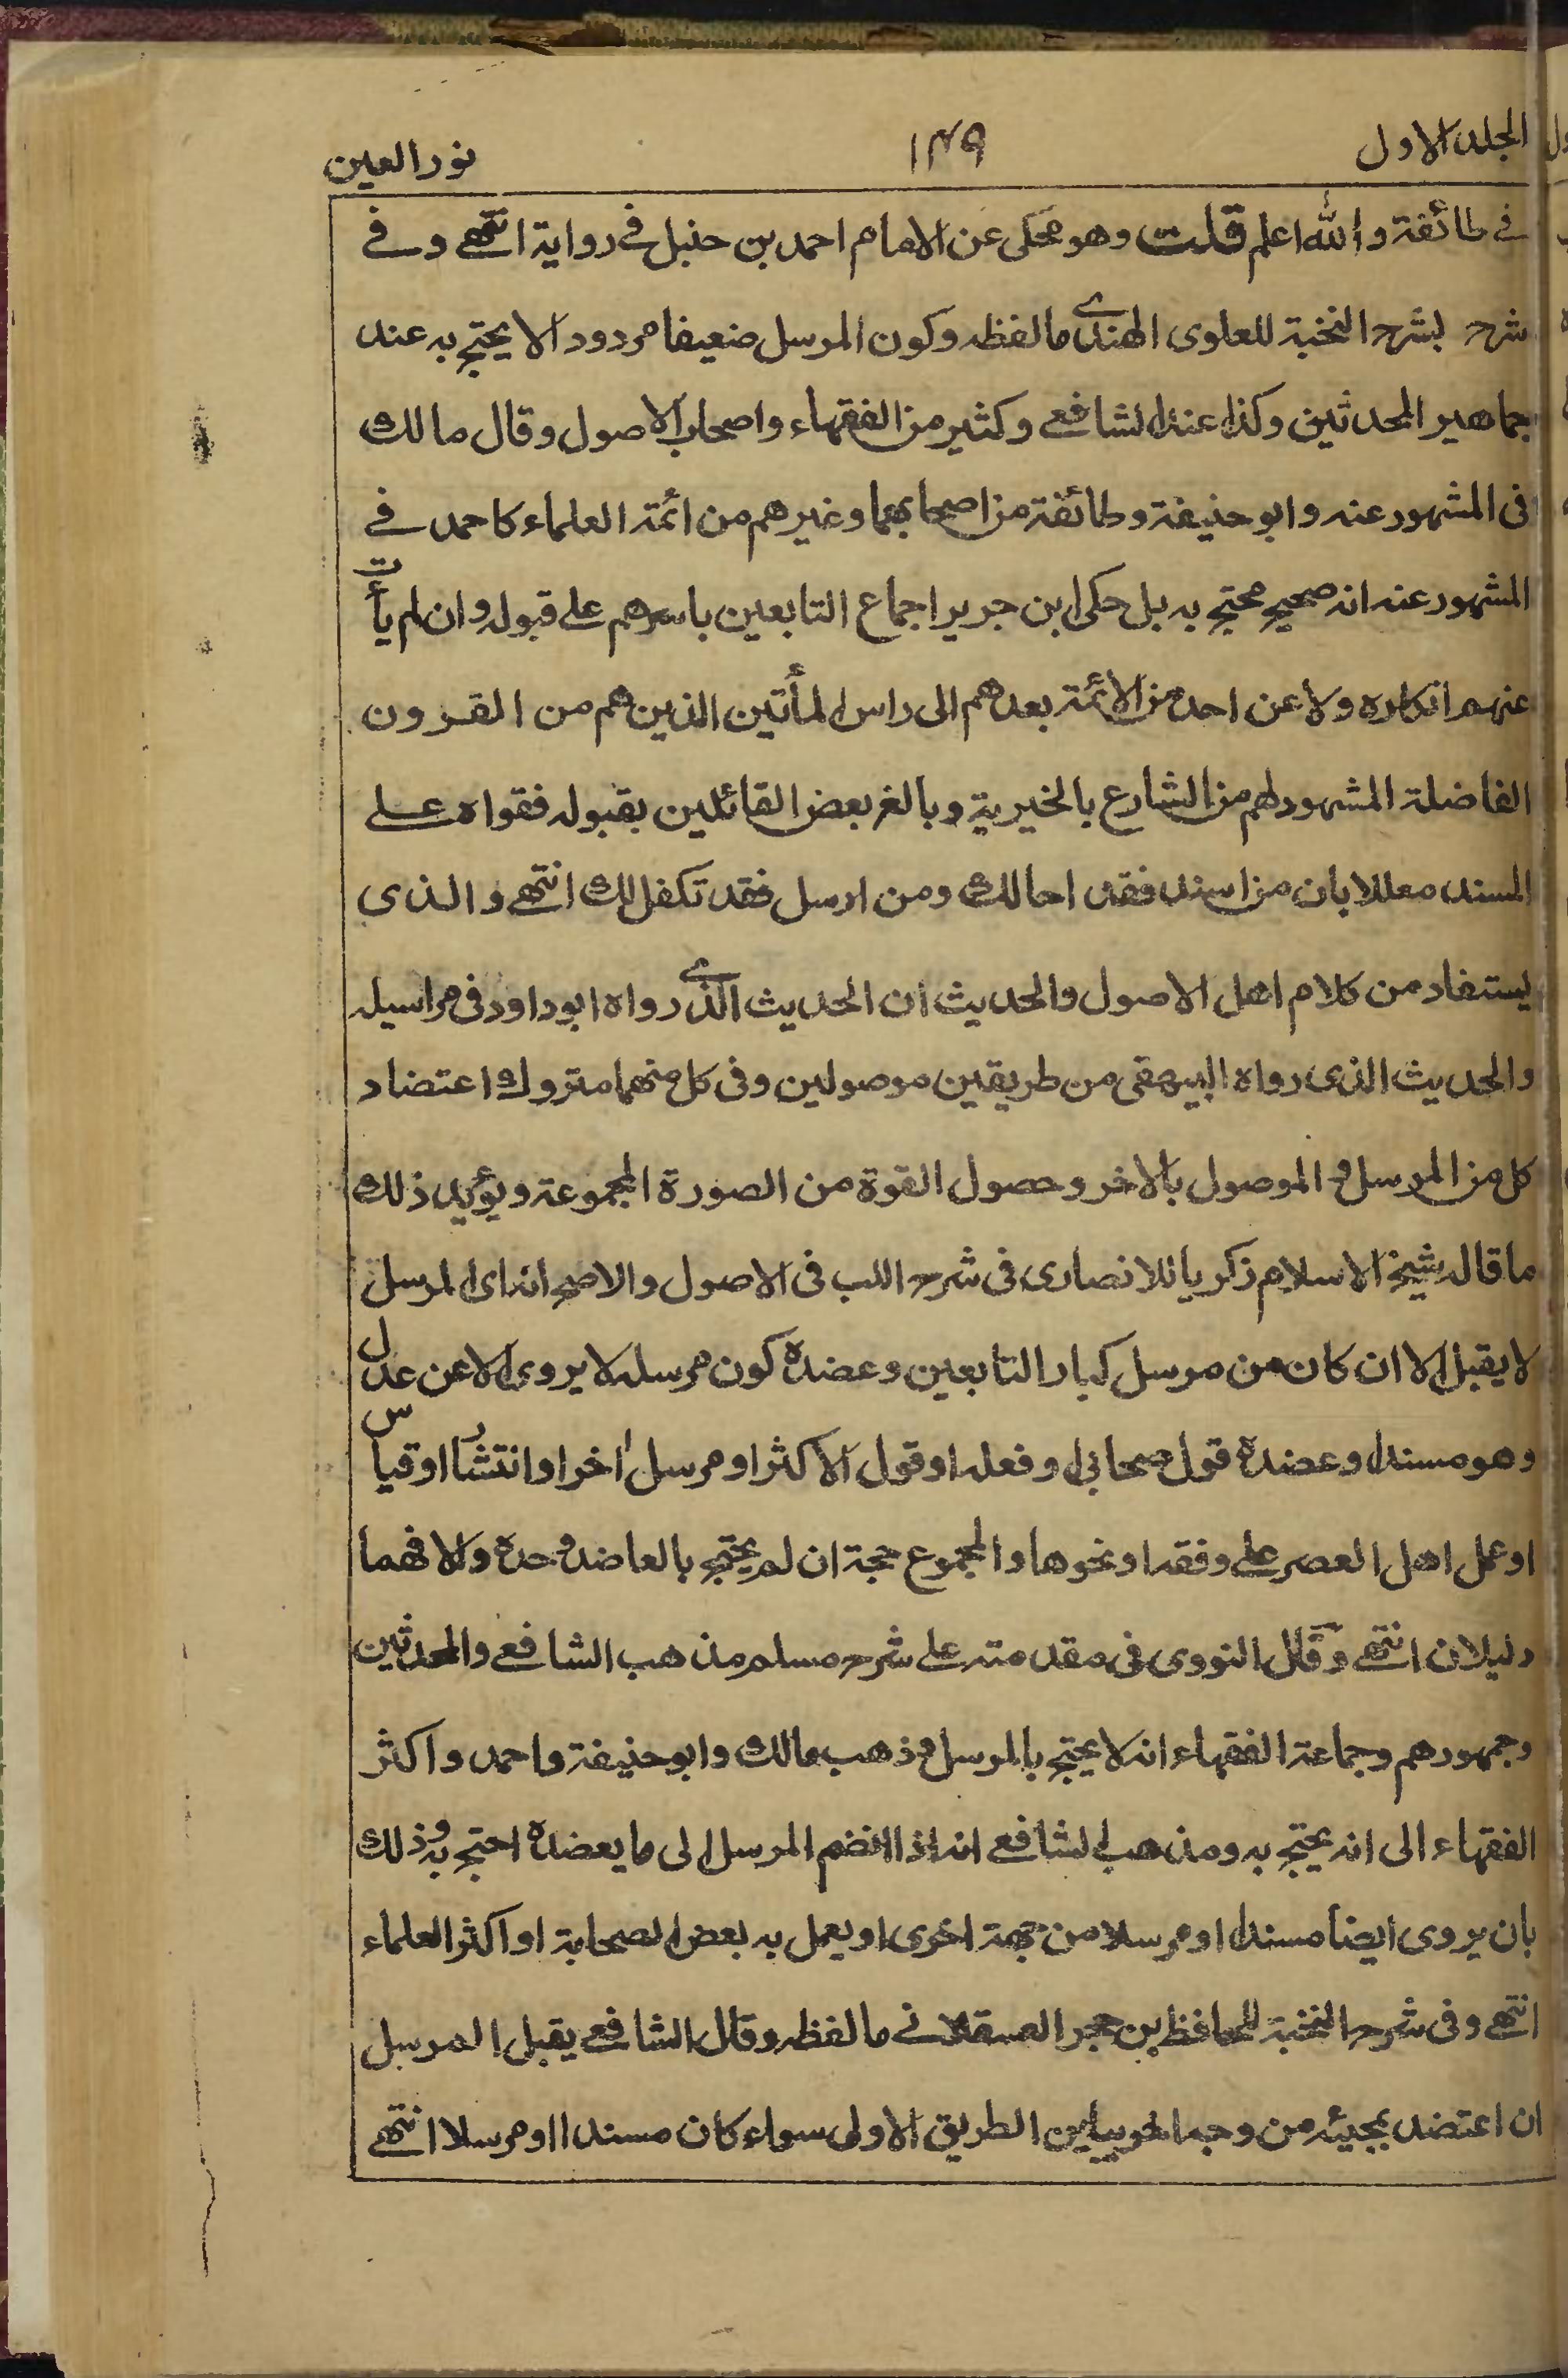 المجلد الاول ١٤٩ نور العين
في طائفة والله اعلم قلت وهو محكى عن الامام احمد بن حنبل في رواية انتهى وفي
شرح لشرح النخبة للعلوى الهندي ما لفظه وكون المرسل ضعيفا مردودا لا يحتج به عند
جماهير المحدثين وكذا عند الشافعي وكثير من الفقهاء واصحاب الاصول وقال مالك
فى المشهور عنه وابو حنيفة وطائفة من اصحابهما وغيرهم من ائمة العلماء كاحمد في
المشهور عنه انه صحيح محتج به بل حكى ابن جرير اجماع التابعين باسرهم على قبوله وان لم يأت
عنهم انكاره ولا عن احد من الائمة بعدهم الى راس المأتين الذين هم من القرون
الفاضلة المشهود لهم من الشارع بالخيرية وبالغ بعض القائلين بقبوله فقواه على
المسند معللا بان من اسند فقد احالك ومن ارسل فقد تكفل لك انتهى والذى
يستفاد من كلام اهل الاصول والحديث ان الحديث الذي رواه ابو داود فى مراسيله
والحديث الذى رواه البيهقى من طريقين موصولين وفى كل منهما متروك اعتضاد
كل من المرسل والموصول بالاخر وحصول القوة من الصورة المجموعة ويؤيد ذلك
ما قاله شيخ الاسلام زكريا الانصارى فى شرح اللب فى الاصول والاصح انه اى المرسل
لا يقبل الا ان كان من مرسل كبار التابعين وعضده كون مرسله لا يروى الا عن عدل
وهو مسند او عضده قول صحابى او فعله او قول الاكثر او مرسل اخر او انتشار او قياس
او عمل اهل العصر على وفقه او نحوها والمجموع حجة ان لم يحتج بالعاضد وحده والا فهما
دليلان انتهى وقال النووى فى مقدمته على شرح مسلم مذهب الشافعي والمحدثين
وجمهورهم وجماعة الفقهاء انه لا يحتج بالمرسل وذهب مالك وابو حنيفة واحمد واكثر
الفقهاء الى انه يحتج به ومذهب الشافعي انه اذا انضم المرسل الى ما يعضده احتج به وذلك
بان يروى ايضا مسندا او مرسلا من جهة اخرى او يعمل به بعض الصحابة او اكثر العلماء
انتهى وفى شرح النخبة للحافظ بن حجر العسقلاني ما لفظه وقال الشافعي يقبل المرسل
ان اعتضد بمجيئه من وجه اخر يباين الطريق الاولى سواء كان مسندا او مرسلا انتهى